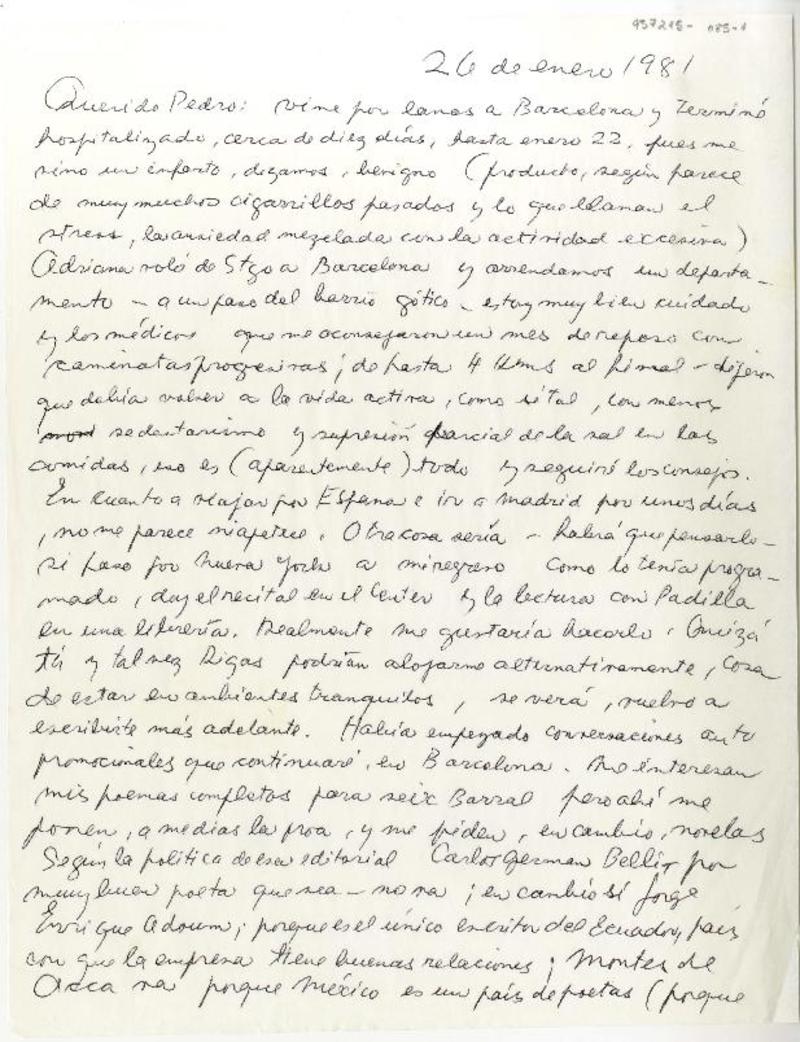 957215- 085-1
26 de enero 1981
Querido Pedro: vine por lanas a Barcelona y terminé
hospitalizado, cerca de diez días, hasta enero 22, pues me
vino un infarto, digamos, benigno (producto, según parece
de muy muchos cigarrillos pasados y lo que llaman el
stress, la ansiedad mezclada con la actividad excesiva)
Adriana voló de Stgo a Barcelona y arrendamos un departa-
mento - a un paso del barrio gótico - estoy muy bien cuidado
y los médicos que me aconsejaron un mes de reposo con
caminatas progresivas; de hasta 4 Kms al final - dijeron
que debía volver a la vida activa, como si tal, con menos
sedentarismo y supresión parcial de la sal en las
comidas, eso es (aparentemente) todo y seguiré los consejos.
En cuanto a viajar por España e ir a Madrid por unos días
, no me parece ni apetece. Otra cosa sería - habrá que pensarlo -
si paso por Nueva York a mi regreso como lo tenía progra-
mado, doy el recital en el Center y la lectura con Padilla
en una librería. Realmente me gustaría hacerlo. Quizá
tú y tal vez Rigas podrían alojarme alternativamente, cosa
de estar en ambientes tranquilos, se verá, vuelvo a
escribirte más adelante. Había empezado conversaciones auto
promocionales que continuaré, en Barcelona. Me interesan
mis poemas completos para Seix Barral pero ahí me
ponen, a medias la proa, y me piden, en cambio, novelas
Según la política de esa editorial Carlos German Belli - por
muy buen poeta que sea - no va; en cambio sí Jorge
Enrique Adoum; porque es el único escritor del Ecuador, país
con que la empresa tiene buenas relaciones; Montes de
Occa va porque México es un país de poetas (porque